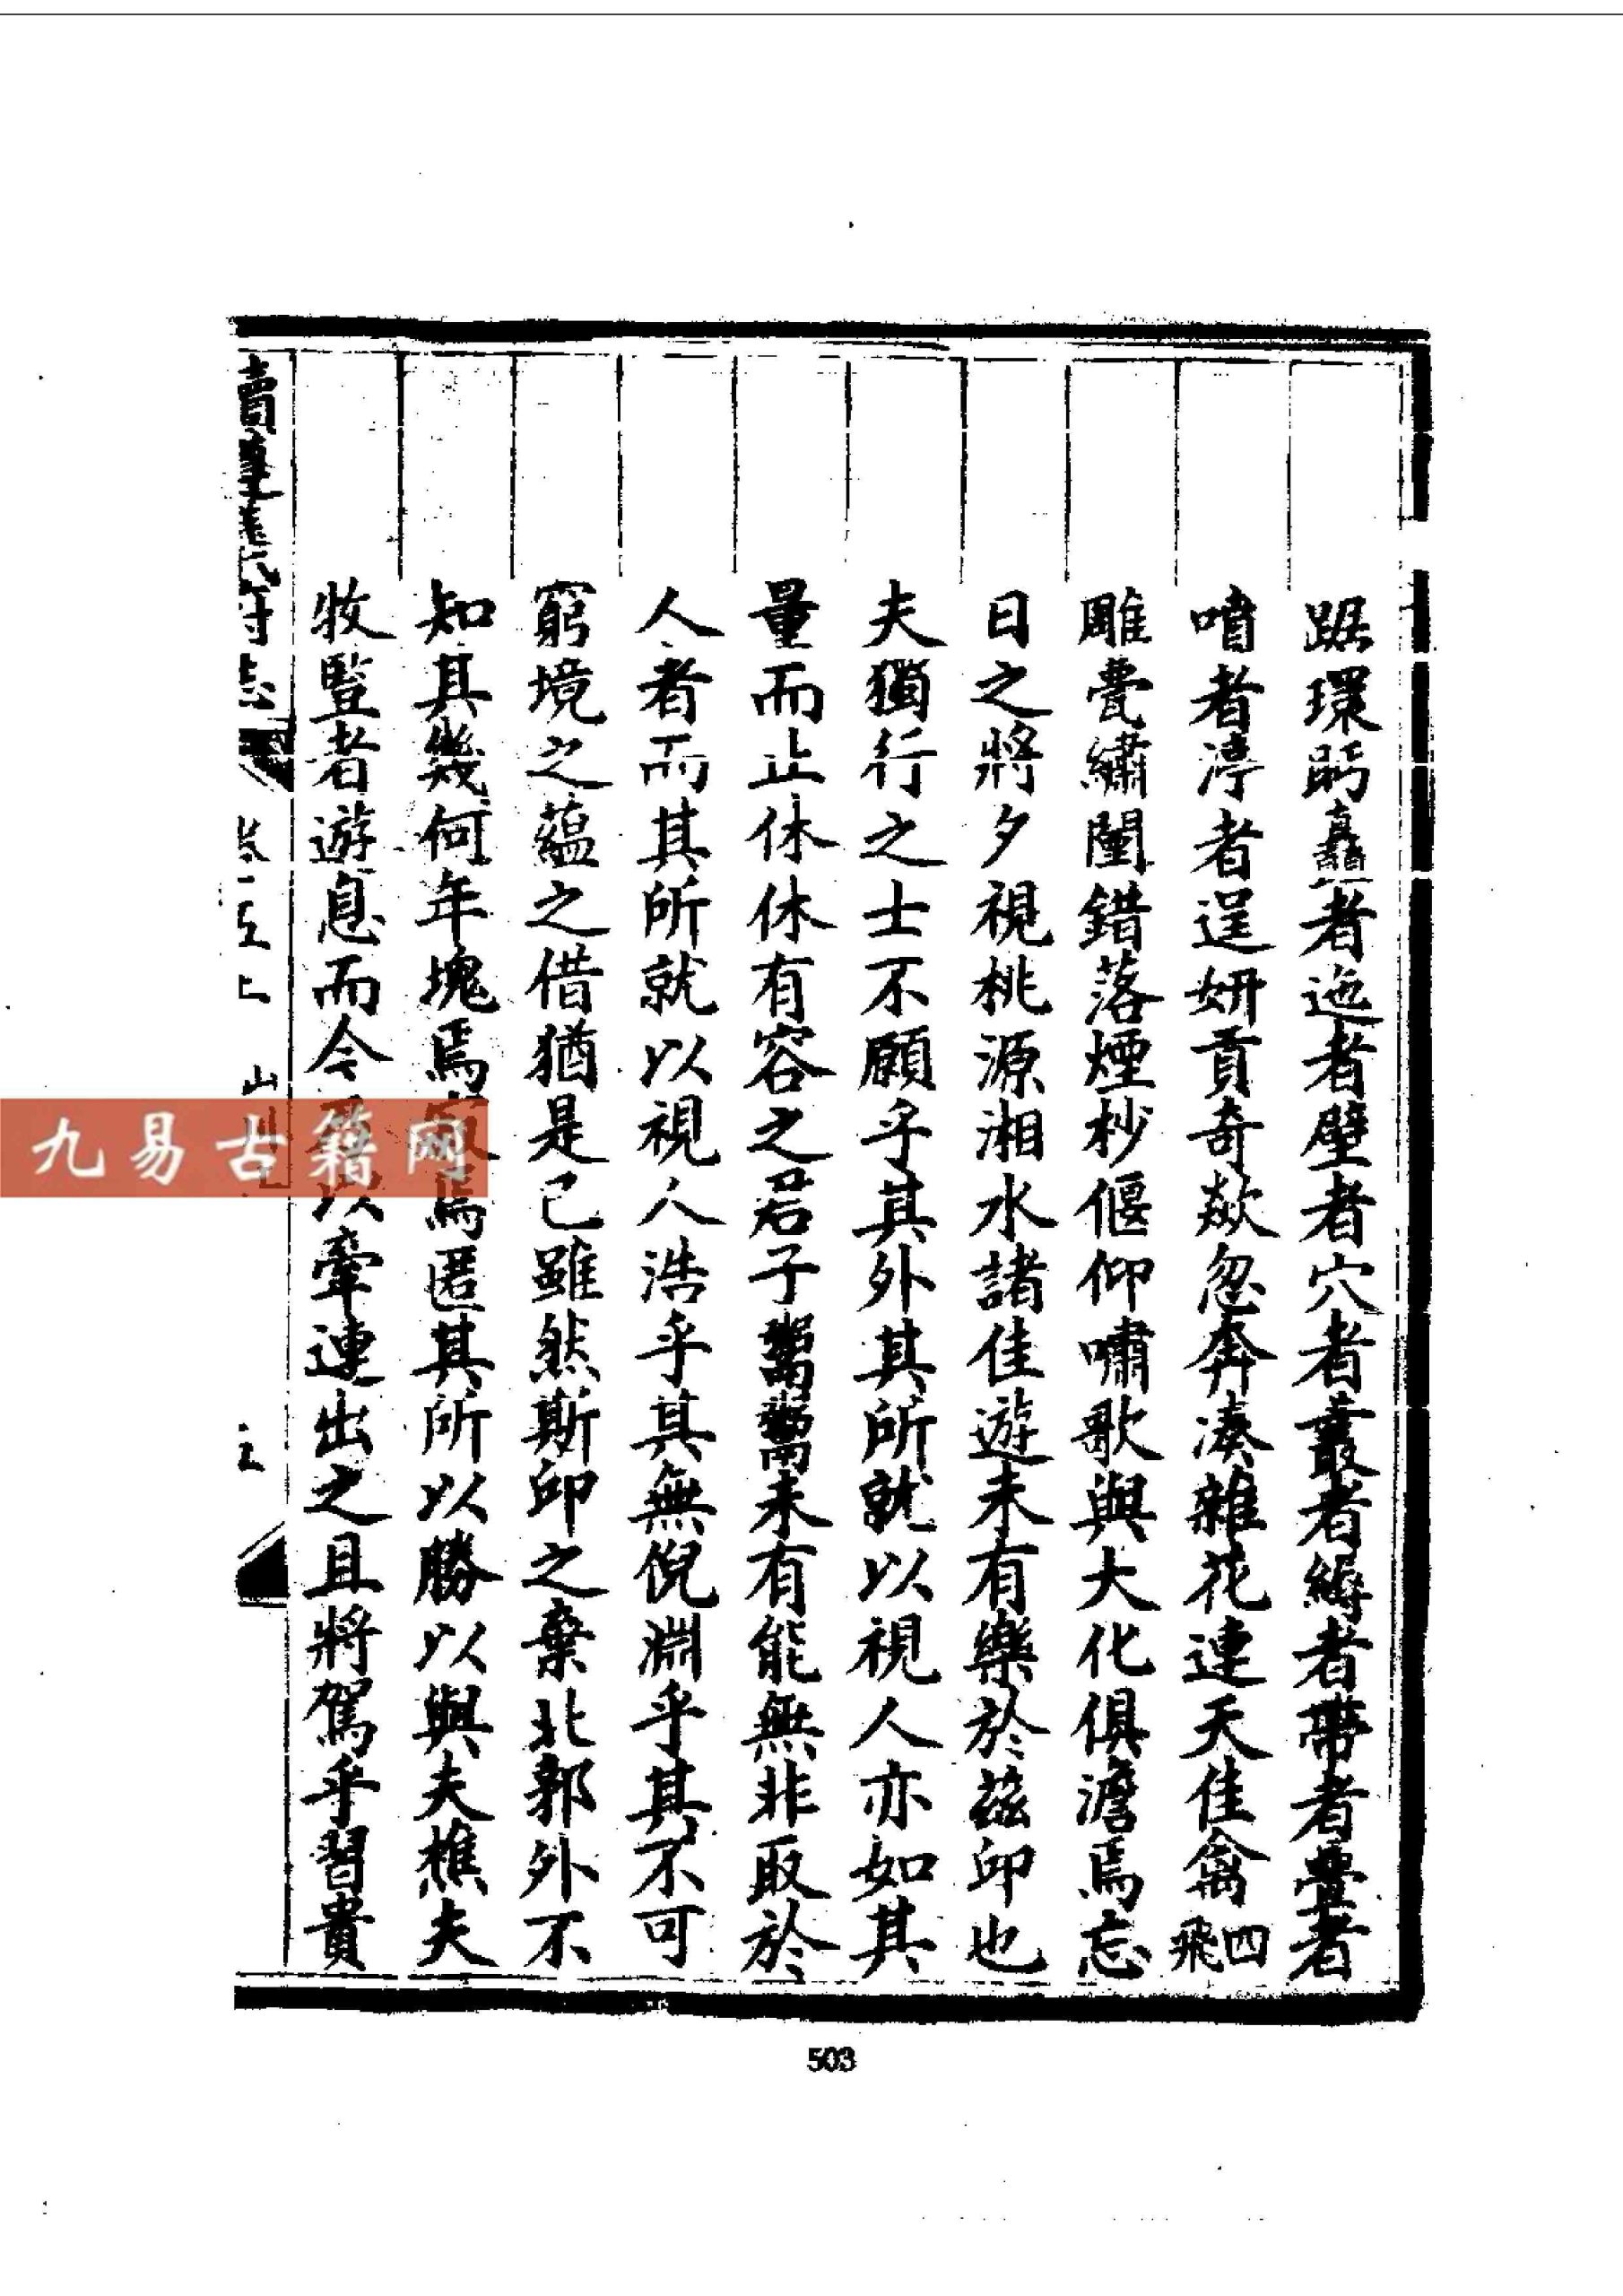 踞環眄矗者迤者壁者穴者叢者縟者帶者疊者
噴者渟者逞妍貢奇欻忽奔湊雜花連天佳禽四飛
雕甍繡闥錯落煙杪偃仰嘯歌與大化俱澹焉忘
日之將夕視桃源湘水諸佳遊未有樂於茲卬也
夫獨行之士不願乎其外其所就以視人亦如其
量而止休休有容之君子鬻鬻未有能無非取於
人者而其所就以視人浩乎其無倪淵乎其不可
窮境之蘊之借猶是已雖然斯卬之棄北郭外不
知其幾何年塊焉焉匿其所以勝以與夫樵夫
牧豎者遊息而今以牽連出之且將駕乎習貴
續遵義府志
卷五上
山
五
九易古籍网
503